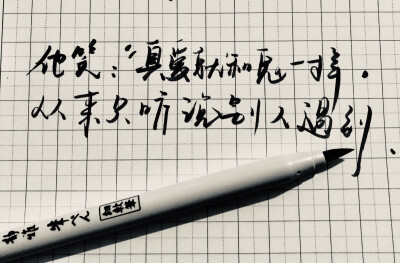 他笑：“真爱就和鬼一样，
从来只听说别人遇到.